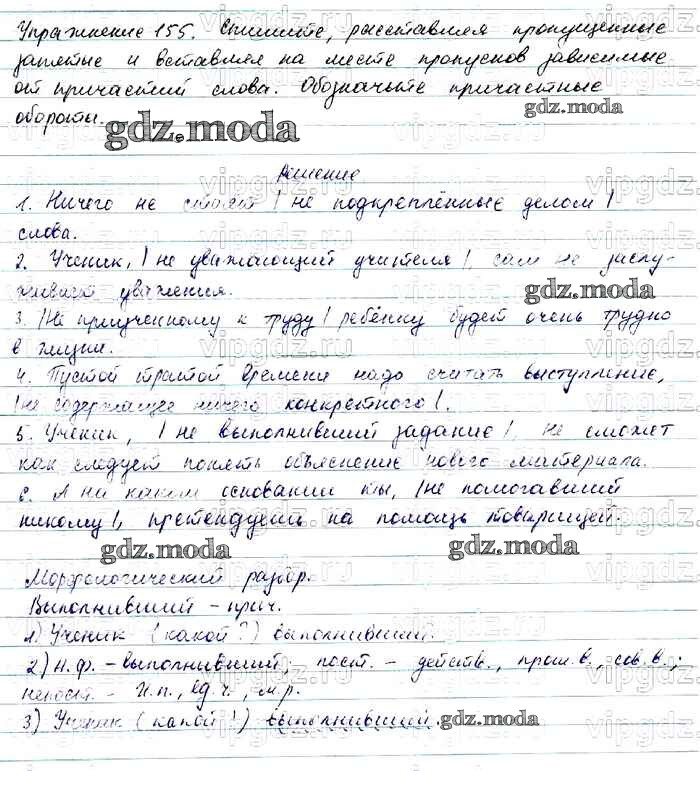 Упражнение 155. Спишите, расставляя пропущенные
запятые и вставляя на месте пропусков зависимые
от причастий слова. Обозначьте причастные
обороты.
gdz.moda
Решение
1. Ничего не стоят | не подкреплённые делом |
слова.
2. Ученик, | не уважающий учителя |, сам не заслу-
живает уважения.
gdz.moda
3. | Не приученному к труду | ребёнку будет очень трудно
в жизни.
4. Пустой тратой времени надо считать выступление,
| не содержащее ничего конкретного |.
5. Ученик, | не выполнивший задание |, не сможет
как следует понять объяснение нового материала.
6. А на каком основании ты, | не помогавший
никому |, претендуешь на помощь товарищей.
gdz.moda
gdz.moda
Морфологический разбор.
Выполнивший – прич.
1) Ученик (какой?) выполнивший.
2) Н.ф. – выполнивший; пост. – действ., прош.в., сов.в.;
непост. – И.п., ед.ч., м.р.
3) Ученик (какой?) выполнивший.
gdz.moda
vipgdz.ru